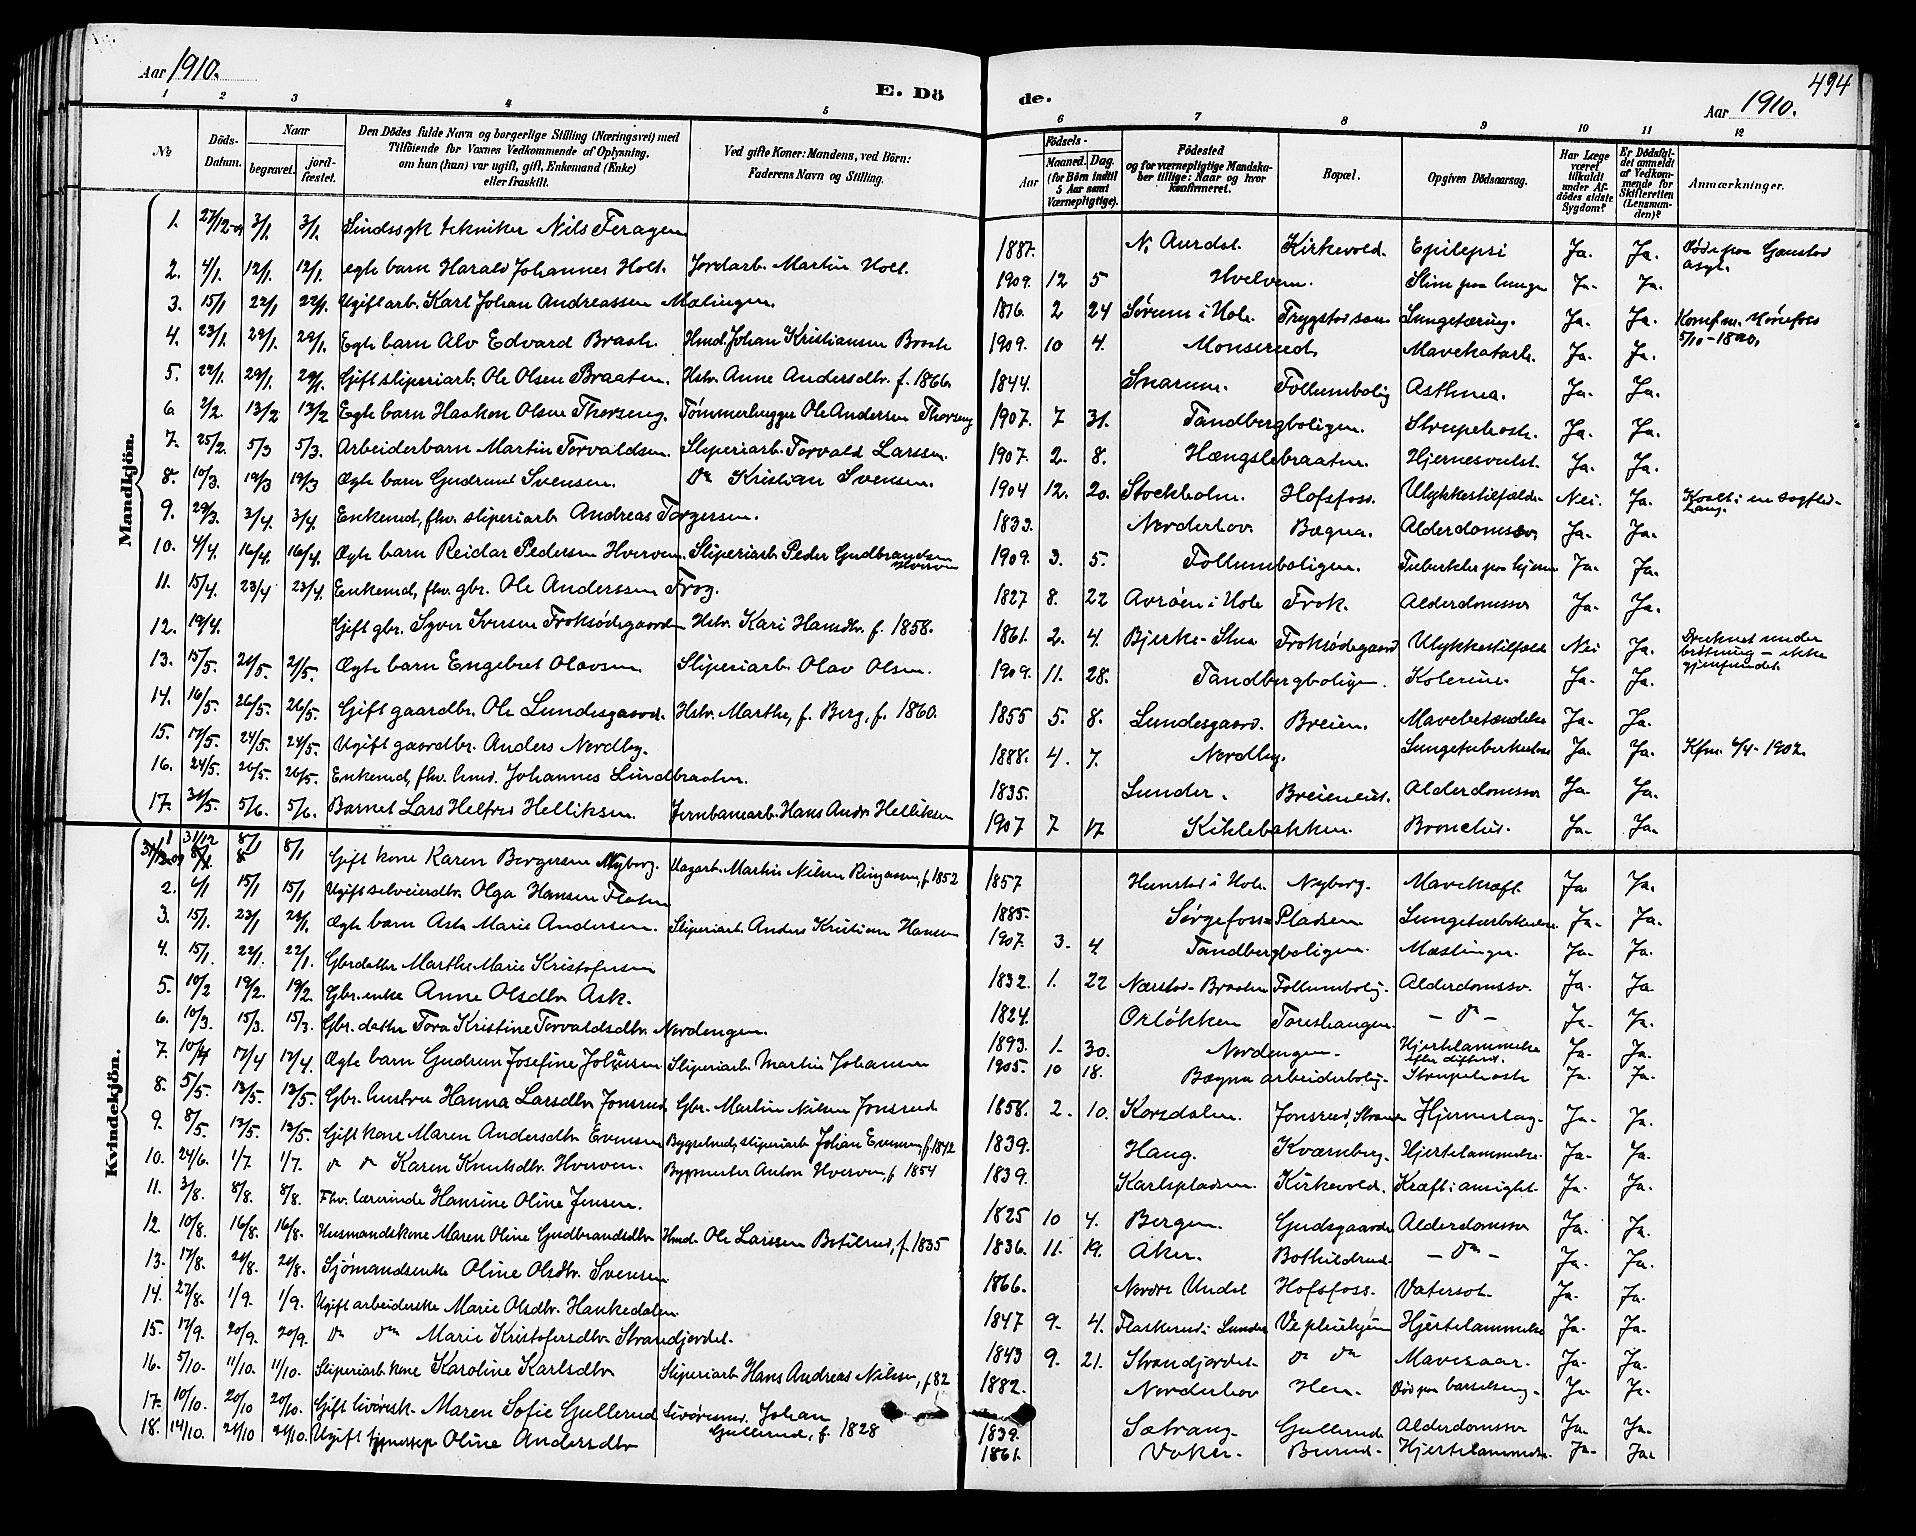 Aar 1910.
E. Döde.
494
Aar 1910.
1 2 3 4 5 6 7 8 9 10 11 12
№
Döds-Datum.
Naar
begravet.
jord-fæstet.
Den Dödes fulde Navn og borgerlige Stilling (Næringsvei) med
Tilföiende for Voxnes Vedkommende af Oplysning,
om hun (hun) var ugift, gift, Enkemand (Enke)
eller fraskilt.
Ved gifte Koner: Mandens, ved Börn:
Faderens Navn og Stilling.
Födsels-
Aar
Maaned. Dag.
(for Börn indtil
5 Aar samt
Værnepligtige).
Födested
og for værnepligtige Mandska-
ber tillige: Naar og hvor
Konfirmeret.
Bopæl.
Opgiven Dödsaarsag.
Har Læge
været
tilkaldt
under Af-
dödes sidste
Sygdom?
Er Dödsfal-
det anmeldt
af Vedkom-
mende for
Skifteretten
(Lensman-
den)?
Anmærkninger.
Mandkjön.
1. 27/12-09 3/1. 3/1. Sindssyk tekniker Nils Feragen 1887. N. Aurdal. Kirkevold. Epilepsi Ja. Ja. Døde paa Gaustad asyl.
2. 4/1. 12/1. 12/1. egte barn Harald Johannes Holt. Jordarb. Martin Holt. 1909. 12 5 Hvelven. Slim paa lunger Ja. Ja.
3. 15/1 22/1 22/1. Ugift arb. Karl Johan Andreassen Mælingen. 1876. 2 24 Sørum i Hole. Trygstad Lungetæring. Ja. Ja. Konf. Hønefos 5/10-1890.
4. 23/1. 29/1. 29/1. Egte barn Alv Edvard Braak. Hmd. Johan Kristiansen Braak 1909. 10 4. Monserud. Mavekatarh. Ja. Ja.
5. 22/1. 29/1. 29/1. Gift sliperiarb. Ole Olsen Braaten. Hstr. Anne Andersdtr. f. 1866. 1844. Snarum. Follumbolig Asthma. Ja. Ja.
6. 2/2. 13/2 13/2 Egte barn Haakon Olsen Thorseng. Tømmerhugger Ole Andersen Thorseng 1907. 7 31. Tandbergboligen. Strupehoste. Ja. Ja.
7. 25/2. 5/3 5/3. Arbeiderbarn Martin Torvaldsen. Sliperiarb. Torvald Larssen. 1907. 2. 8. Hængslebraaten. Hjernesvulst. Ja. Ja.
8. 10/3. 19/3 19/3 Ægte barn Gudrund Svensen. Do Kristian Svensen. 1904 12. 20. Stockholm. Hofsfoss. Ulykkestilfælde Nei. Ja. Kvalt i en
9. 29/3. 3/4. 3/4. Enkemd, fhv. sliperiarb. Andreas Torgersen. 1833. Norderhov. Bægna. Alderdomssv. Ja. Ja.
10. 4/4. 16/4. 16/4. Ægte barn Reidar Pedersen Hverven. Sliperiarb. Peder Gudbrandsen Hverven 1909. 3. 5. Follumboligen. Tuberkler paa hjernen Ja. Ja.
11. 15/4. 23/4 23/4. Enkemd, fhv. gbr. Ole Anderssen Frog. 1827 8. 22 Avrøen i Hole Frok. Alderdomssv Ja. Ja.
12. 19/4. Gift gbr. Syver Iversen Froksødegaarden Hstr. Kari Hansdtr. f. 1858. 1861. 2. 4. Bjerke-Stua Froksødegaard Ulykkestilfæld Nei Ja. Druknet under fløtning - ikke gjenfundet.
13. 15/5. 21/5. 21/5. Ægte barn Engebret Olavsen Sliperiarb. Olav Olsen. 1909. 11. 28. Tandbergboligen. Kolerine. Ja. Ja.
14. 16/5. 26/5. 26/5. Gift gaardbr. Ole Lundesgaard. Hstr. Marthe, f. Berg, f. 1860. 1855 5. 8. Lundesgaard. Breien. Mavebetændelse Ja. Ja.
15. 17/5. 24/5. 24/5. Ugift gaardbr. Anders Nordby. 1888. 4. 7. Nordby. Lungetuberkulose Ja. Ja. Kfm. 6/4-1902.
16. 24/5. 26/5. 26/5. Enkemd, fhv. hmd. Johannes Lindbraaten. 1835. Lunder. Breieneiet. Alderdomssv Ja. Ja.
17. 31/5. 5/6. 5/6. Barnet Lars Helfred Helliksen. Jernbanearb. Hans Andr. Helliksen 1907 7 17 Kihlebakken. Bronchit. Ja. Ja.
Kvindekjön.
1 31/12 8/1 8/1 Gift kone Karen Borgersen Nyborg. Martin Nilsen Ringaasen, f. 1852 1857 Hunstad i Hole. Nyborg. Mavekræft Ja. Ja.
2. 6/1 15/1 15/1. Ugift selveierdtr. Olga Hansen Flaten 1885. Sørgefoss Pladsen Lungetuberkulose Ja. Ja.
3. 15/1. 23/1 23/1. Ægte barn Asta Marie Andersen. Sliperiarb. Anders Kristian Hansen 1907. 3. 4. Tandbergboligen. Mæslinger. Ja. Ja.
4. 15/1 22/1. 22/1. Gbrdatter Marthe Marie Kristofersen 1832. 1. 22 Nærstad-Braaten Follumbolig. Alderdomssv. Ja. Ja
5. 10/2 19/2. 19/2. Gbr. enke Anne Olsdtr Ask. 1824. Orløkken Toreshaugen - Do - Ja. Ja.
6. 10/3. 15/3. 15/3. Gbr. datter Tora Kristine Torvaldsdtr. Nordengen. 1893. 1. 30. Nordengen. Hjertelammelse efter difterit. Ja. Ja.
7. 10/4 17/4 17/4. Ægte barn Gudrun Josefine Johansen Sliperiarb. Martin Johansen 1905. 10 18. Bægna arbeiderbolig. Strupehoste Ja. Ja.
8. 5/5. 13/5. 13/5. Gbr. hustru Hanna Larsdtr. Jonsrud, Gbr. Martin Nilsen Jonsrud 1858. 2. 10. Korsdalen. Jonsrud, Stranden Hjerneslag. Ja. Ja.
9. 8/5. 13/5. 13/5. Gift kone Maren Andersdtr Evensen Bygselmd, sliperiarb. Johan Evensen, f. 1842 1839. Haug. Kværnberg. Hjertelammelse. Ja. Ja.
10. 24/6. 1/7. 1/7. Do Do Karen Knutsdtr. Hverven. Bygmester Anton Hverven, f. 1854 1839. Karlspladsen. Kirkevold. Kræft i ansigt. Ja. Ja.
11. 3/8. 8/8. 8/8. Fhv. lærerinde Hansine Oline Jensen. 1825 10 4. Bergen. Gudsgaarden Alderdomssv Ja. Ja.
12. 10/8. 16/8. 16/8. Husmandskone Maren Oline Gudbrandsdtr. Hmd. Ole Larssen Botilrud, f. 1835 1836. 11. 19. Aker. Bothildrud. - Do - Ja. Ja.
13. 17/8. 20/8. 20/8. Sjømandsenke Oline Olsdtr. Svensen 1866. Nordre Undal Hofsfoss. Vatersot. Ja. Ja.
14. 27/8. 1/9. 1/9. Ugift arbeiderske Marie Olsdtr. Haukedalen 1847 9. 4. Flaskerud i Lunder Ve pleiehjem Hjertelammelse Ja. Ja.
15. 17/9. 20/9. 20/9. Do Do Marie Kristofersdtr. Strandjordet. 1843 9. 21. Strandjordet. Do Do Mavesaar. Ja. Ja.
16. 5/10. 11/10. 11/10. Sliperiarb. kone Karoline Karlsdtr Sliperiarb. Hans Andreas Nilsen, f. 82 1882. Norderhov Hen. Død paa barselseng. Ja. Ja.
17. 10/10. 20/10 20/10. Gift livøresk. Maren Sofie Gullerud Livøresmd. Johan Gullerud, f. 1828 1839. Sætrang. Gullerud Alderdomssv Ja. Ja.
18. 14/10. 21/10 21/10. Ugift Oline Andersdtr 1861. Voker. Burud. Hjertelammelse. Ja. Ja.